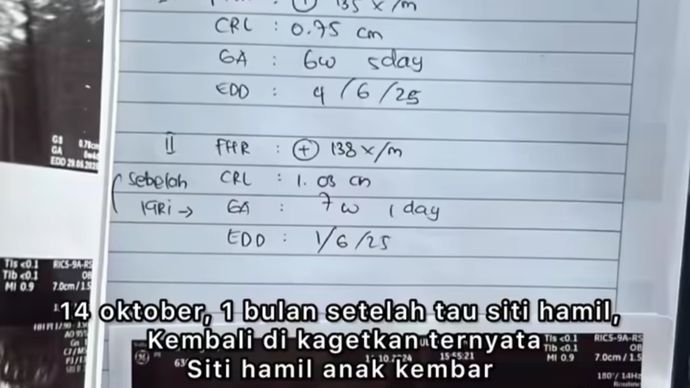 ⊕ 135 x/m
CRL : 0.75 cm
GA : 6w 5day
EDD : 4/6/25
II FHR : ⊕ 138 x/m
(sebelah CRL : 1.03 cm
kiri → GA : 7w 1 day
EDD : 1/6/25
GA
EDD 29.05.202
TIs <0.1 RIC5-9A-RS
TIb <0.1 OB
MI 0.9 7.0cm / 1.5
14 oktober, 1 bulan setelah tau siti hamil,
Kembali di kagetkan ternyata
Siti hamil anak kembar
RIC5-9A-RS
TIb <0.1 OB
MI 0.9 7.0cm / 1.
15:55:21
180°/ 14Hz